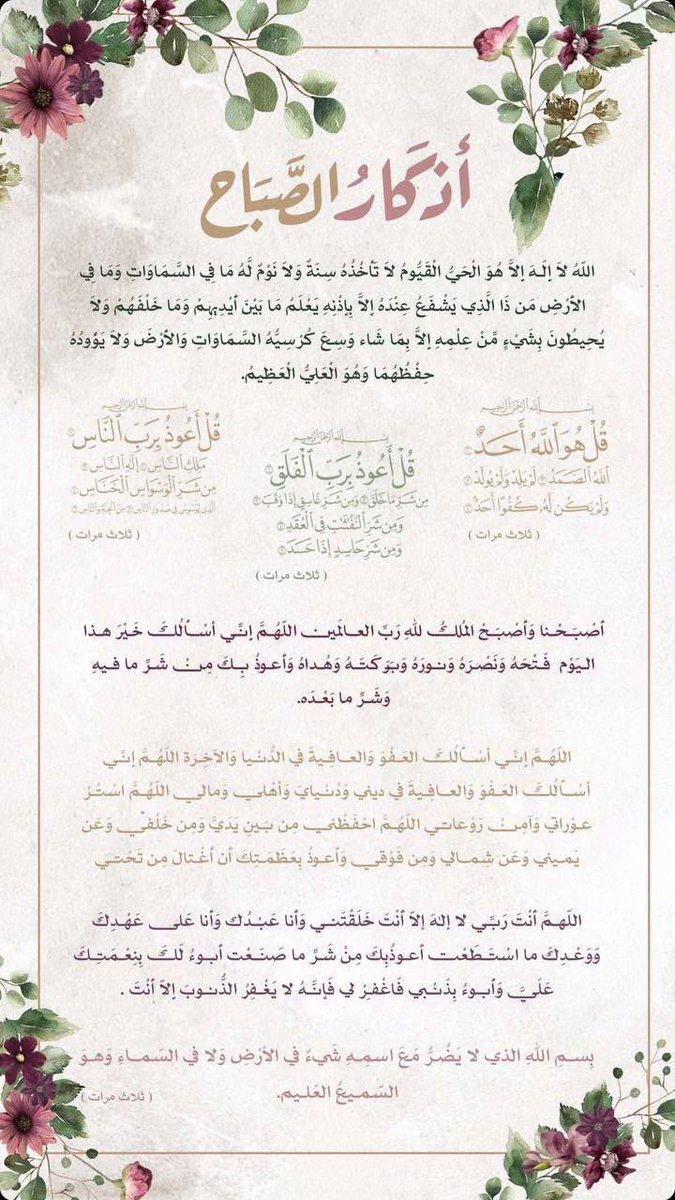 أذكَارُ الصَّبَاح
اللّهُ لاَ إِلَـهَ إِلاَّ هُوَ الْحَيُّ الْقَيُّومُ لاَ تَأْخُذُهُ سِنَةٌ وَلاَ نَوْمٌ لَّهُ مَا فِي السَّمَاوَاتِ وَمَا فِي
الأَرْضِ مَن ذَا الَّذِي يَشْفَعُ عِنْدَهُ إِلاَّ بِإِذْنِهِ يَعْلَمُ مَا بَيْنَ أَيْدِيهِمْ وَمَا خَلْفَهُمْ وَلاَ
يُحِيطُونَ بِشَيْءٍ مِّنْ عِلْمِهِ إِلاَّ بِمَا شَاء وَسِعَ كُرْسِيُّهُ السَّمَاوَاتِ وَالأَرْضَ وَلاَ يَؤُودُهُ
حِفْظُهُمَا وَهُوَ الْعَلِيُّ الْعَظِيمُ.
بسم الله الرحمن الرحيم
قُلْ هُوَ ٱللَّهُ أَحَدٌ
ٱللَّهُ ٱلصَّمَدُ لَمْ يَلِدْ وَلَمْ يُولَدْ
وَلَمْ يَكُن لَّهُۥ كُفُوًا أَحَدٌ
( ثلاث مرات )
بسم الله الرحمن الرحيم
قُلْ أَعُوذُ بِرَبِّ ٱلْفَلَقِ
مِن شَرِّ مَا خَلَقَ وَمِن شَرِّ غَاسِقٍ إِذَا وَقَبَ
وَمِن شَرِّ ٱلنَّفَّٰثَٰتِ فِى ٱلْعُقَدِ
وَمِن شَرِّ حَاسِدٍ إِذَا حَسَدَ
( ثلاث مرات )
بسم الله الرحمن الرحيم
قُلْ أَعُوذُ بِرَبِّ ٱلنَّاسِ
مَلِكِ ٱلنَّاسِ إِلَٰهِ ٱلنَّاسِ
مِن شَرِّ ٱلْوَسْوَاسِ ٱلْخَنَّاسِ
ٱلَّذِى يُوَسْوِسُ فِى صُدُورِ ٱلنَّاسِ مِنَ ٱلْجِنَّةِ وَٱلنَّاسِ
( ثلاث مرات )
أَصْبَـحْـنا وَأَصْبَـحْ المُلكُ للهِ رَبِّ العـالَمَيـن اللّهُـمَّ إِنَّـي أسْـأَلُـكَ خَـيْرَ هـذا
الـيَوْم فَـتْحَهُ وَنَصْرَهُ وَنـورَهُ وَبَرَكَتَـهُ وَهُداهُ وَأَعـوذُ بِـكَ مِـنْ شَـرِّ ما فـيهِ
وَشَـرِّ ما بَعْدَه.
اللّهُـمَّ إِنَّـي أسْـأَلُـكَ العَـفْوَ وَالعـافِـيةَ في الدُّنْـيا وَالآخِـرَة اللّهُـمَّ إِنَّـي
أسْـأَلُـكَ العَـفْوَ وَالعـافِـيةَ في ديني وَدُنْـيايَ وَأهْـلي وَمالـي اللّهُـمَّ اسْتُـرْ
عـوْراتي وَآمِـنْ رَوْعاتـي اللّهُـمَّ احْفَظْـني مِـن بَـينِ يَدَيَّ وَمِن خَلْفـي وَعَن
يَمـيني وَعَن شِمـالي وَمِن فَوْقـي وَأَعـوذُ بِعَظَمَـتِكَ أَن أُغْـتالَ مِن تَحْتـي
اللّهـمَّ أَنْتَ رَبِّـي لا إلهَ إلاّ أَنْتَ خَلَقْتَنـي وَأَنا عَبْـدُك وَأَنا عَلـى عَهْـدِكَ
وَوَعْـدِكَ ما اسْتَـطَعْـت أَعـوذُبِكَ مِنْ شَـرِّ ما صَنَـعْت أَبـوءُ لَـكَ بِنِعْـمَتِـكَ
عَلَـيَّ وَأَبـوءُ بِذَنْـبي فَاغْفِـرْ لي فَإِنَّـهُ لا يَغْـفِرُ الذُّنـوبَ إِلاّ أَنْتَ .
بِسـمِ اللهِ الذي لا يَضُـرُّ مَعَ اسمِـهِ شَيءٌ في الأرْضِ وَلا في السّمـاءِ وَهـوَ
السّمـيعُ العَلـيم.
( ثلاث مرات )